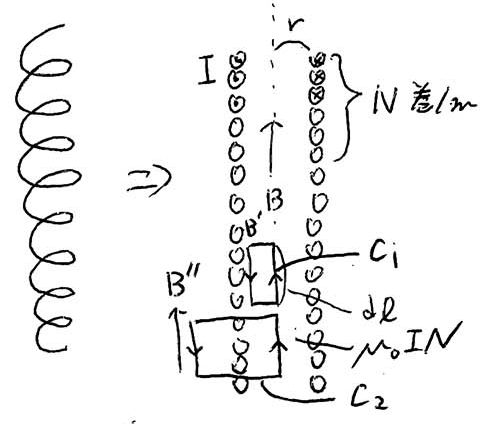 r
I
N 巻/m
B
B'
C₁
B''
dl
μ₀IN
C₂